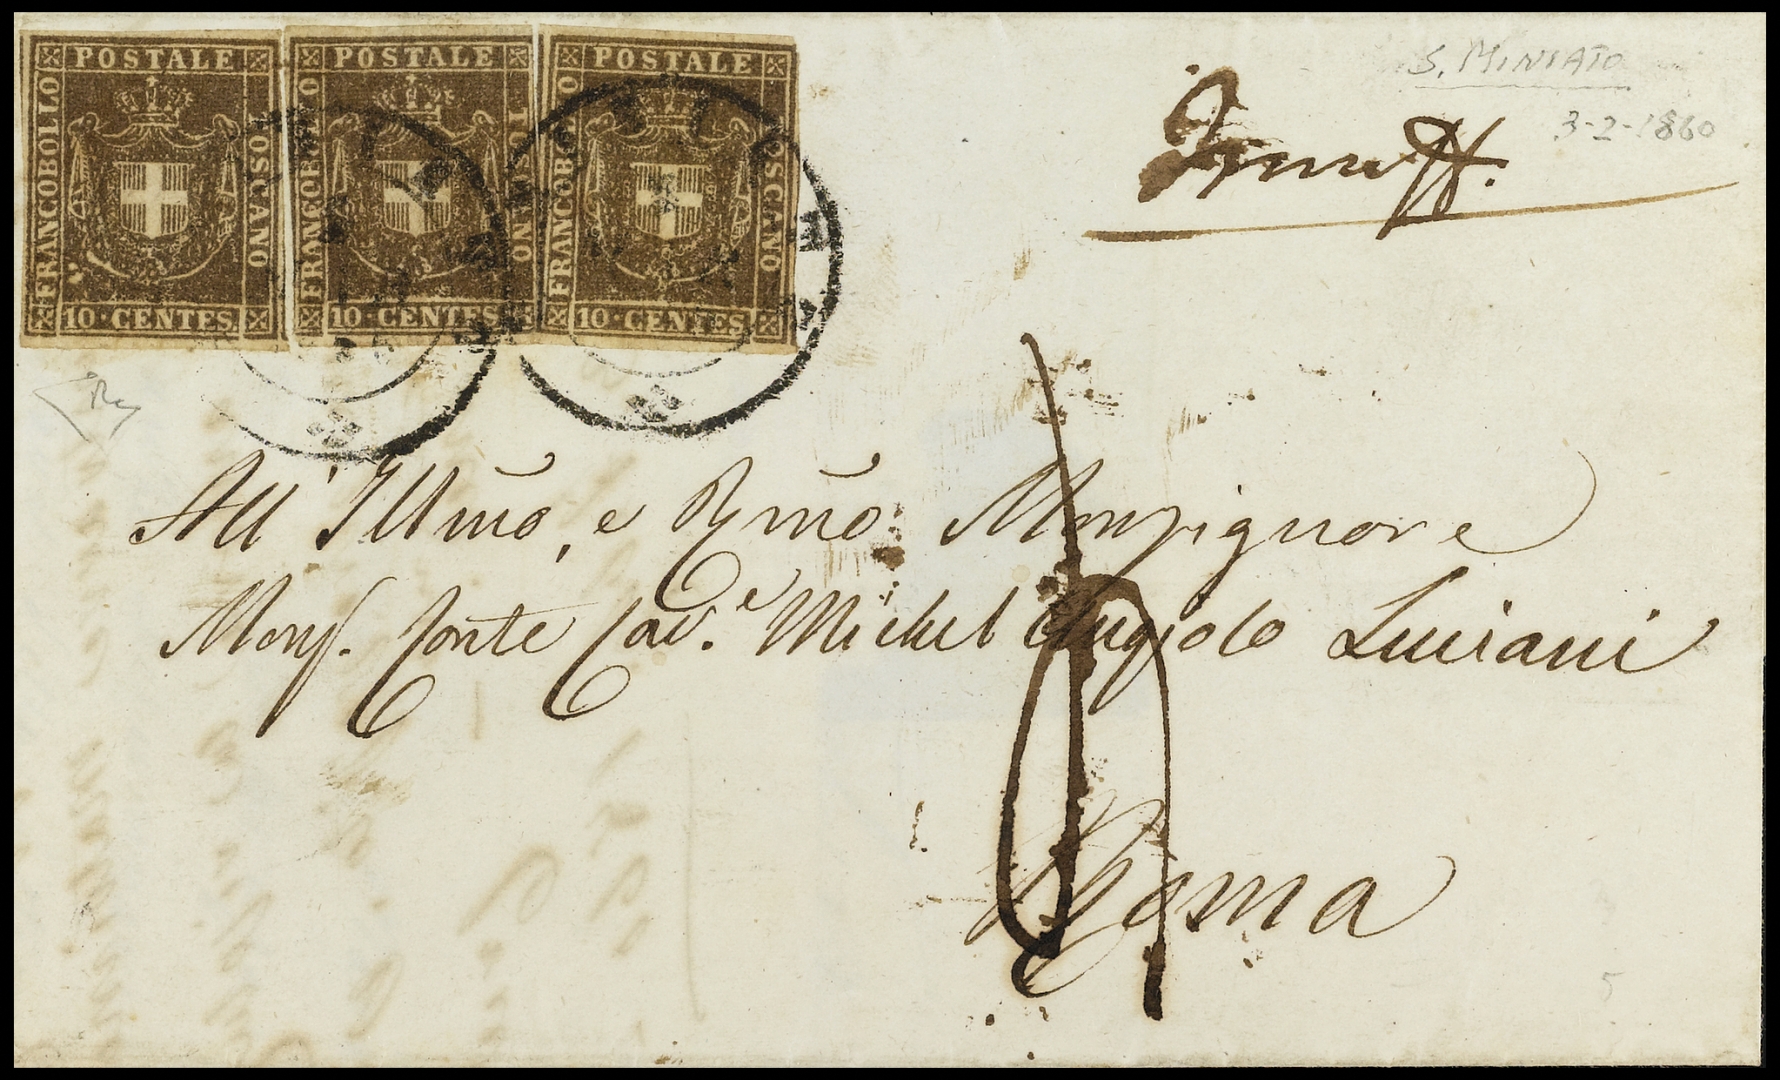 POSTALE POSTALE POSTALE
FRANCOBOLLO TOSCANO FRANCOBOLLO TOSCANO FRANCOBOLLO TOSCANO
10 CENTES. 10 CENTES. 10 CENTES.
S. MINIATO
3-2-1860
All' Illmo, e Rmo Monsignore
Mons. Conte Cav.e Michel Angiolo Luciani
Roma
5